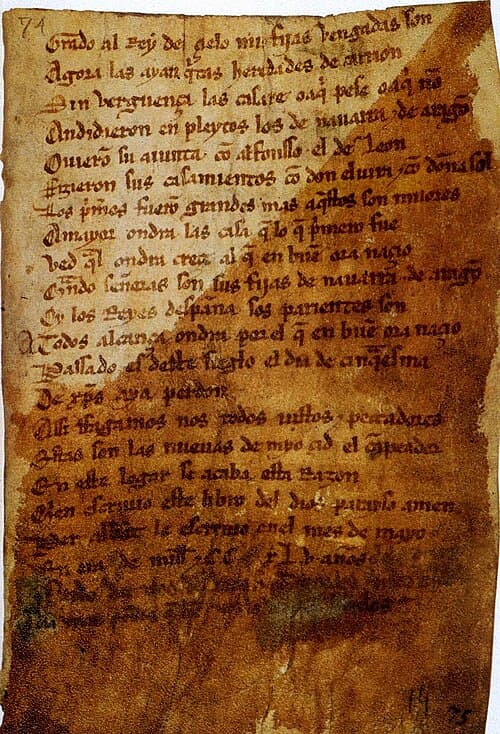 74
Grado al Rey de çielo mis fijas vengadas son
Agora las ayan q̃tas heredades de carrion
Sin verguença las casare o aq̃ pese o aq̃ nõ
Andidieron en pleytos los de nauarra ⁊ de aragõ
Ouierõ su aiunta cõ alfonsso el de Leon
Fizieron sus casamientos cõ don eluira ⁊ cõ doña sol
Los p̃meros fuerõ grandes mas aq̃stos son miiores
A mayor ondra las casa q̃ lo q̃ p̃mero fue
Ved q̃l ondra creçe al q̃ en buẽ ora naçio
Quãdo señoras son sus fijas de nauarra ⁊ de aragõ
Oy los Reyes despaña sos parientes son
A Todos alcança ondra por el q̃ en buẽ ora naçio
Passado es deste sieglo el dia de cinq̃esma
De xp̃s aya perdon
Assi ffagamos nos todos iustos ⁊ peccadores
Estas son las nueuas de myo çid el cãpeador
En este logar se acaba esta Razon
Quien escriuio este libro del dios parayso amen
Per abbat le escriuio enel mes de mayo
En era de mill ⁊ C.C. xL.v. años
75